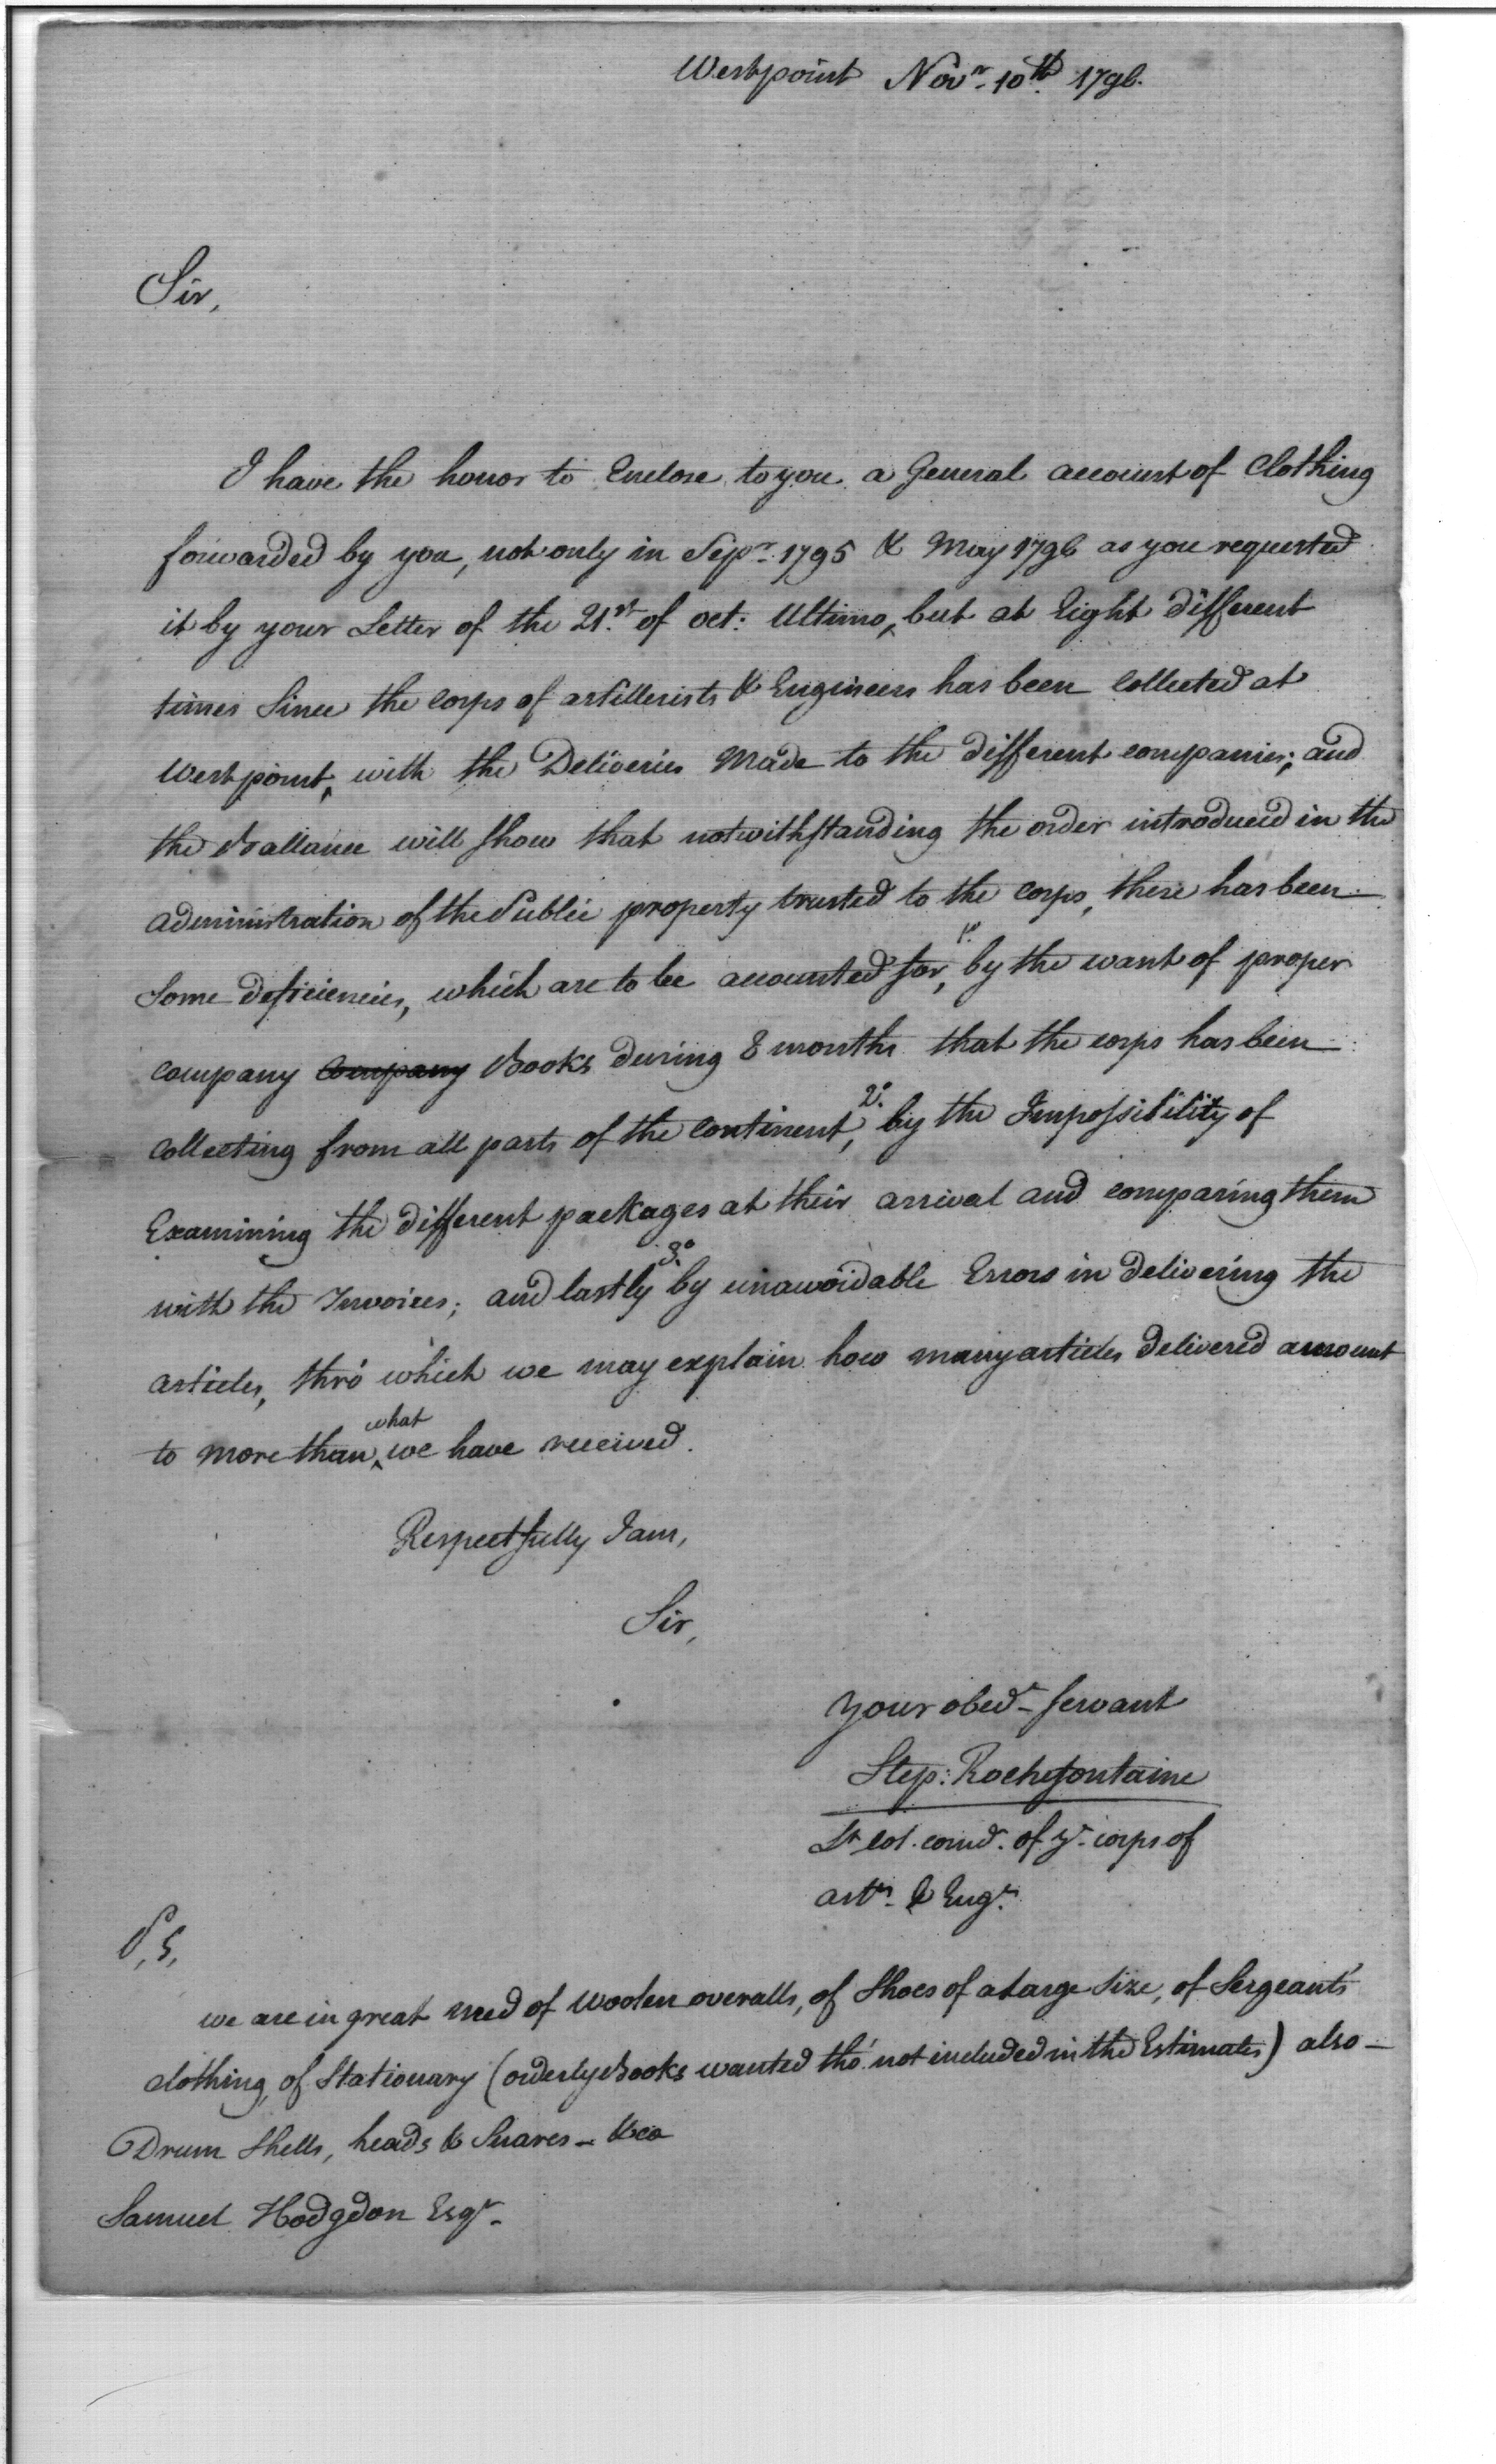 Westpoint Novr. 10th. 1796.
Sir,
I have the honor to Enclose to you a General account of Clothing
forwarded by you, not only in Sepr. 1795 & May 1796 as you requested
it by your Letter of the 21.st of oct: Ultimo, but at Eight different
times Since the corps of artillerists & Engineers has been Collected at
Westpoint, with the Deliveries Made to the different companies; and
the Ballance will show that notwithstanding the order introduced in the
administration of the Public property trusted to the corps, there has been
Some deficiencies, which are to be accounted for, 1o. by the want of proper
company company Books during 8 months that the corps has been
Collecting from all parts of the Continent, 2o. by the Impossibility of
Examining the different packages at their arrival and comparing them
with the Invoices; and lastly 3o. by unawoidable Errors in delivering the
articles, thro' which we may explain how many articles delivered amount
to more than what we have received.
Respectfully I am,
Sir,
your obedt. servant
Step: Rochefontaine
Lt col. comdt. of ye. corps of
artrs. & Engrs.
P.S.
we are in great need of Woolen overalls, of Shoes of a Large Size, of Sergeants'
clothing, of Stationary (orderly Books wanted tho' not included in the Estimates) also —
Drum Shells, heads & Snares — &ca
Samuel Hodgdon Esqr.